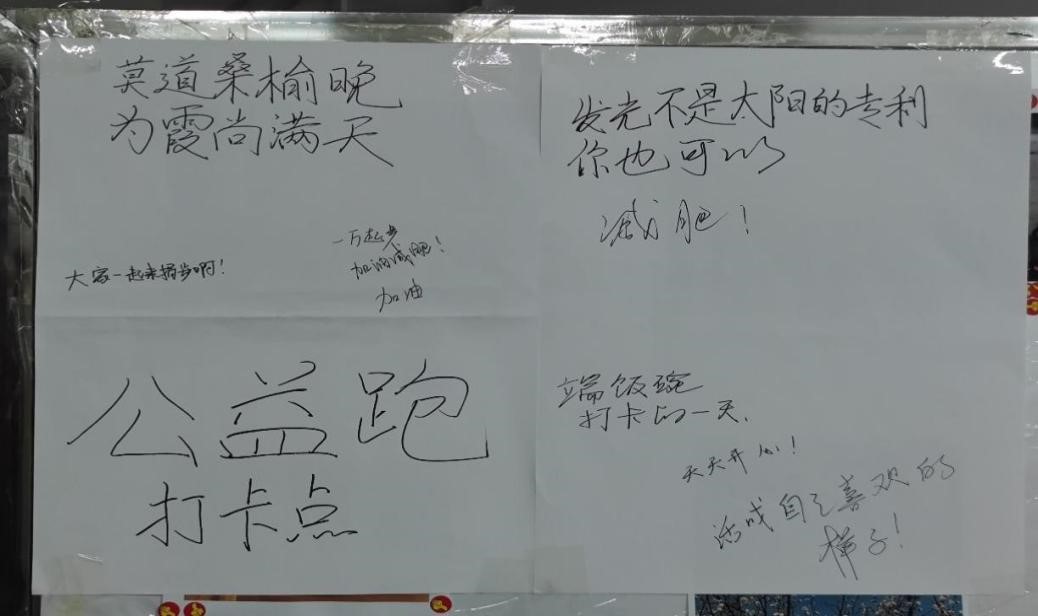 莫道桑榆晚
为霞尚满天
大家一起来捐步啊！
一万起步
加油减肥！
加油
公益跑
打卡点
发光不是太阳的专利
你也可以
减肥！
端饭碗
打卡的一天.
天天开心！
活成自己喜欢的
样子！